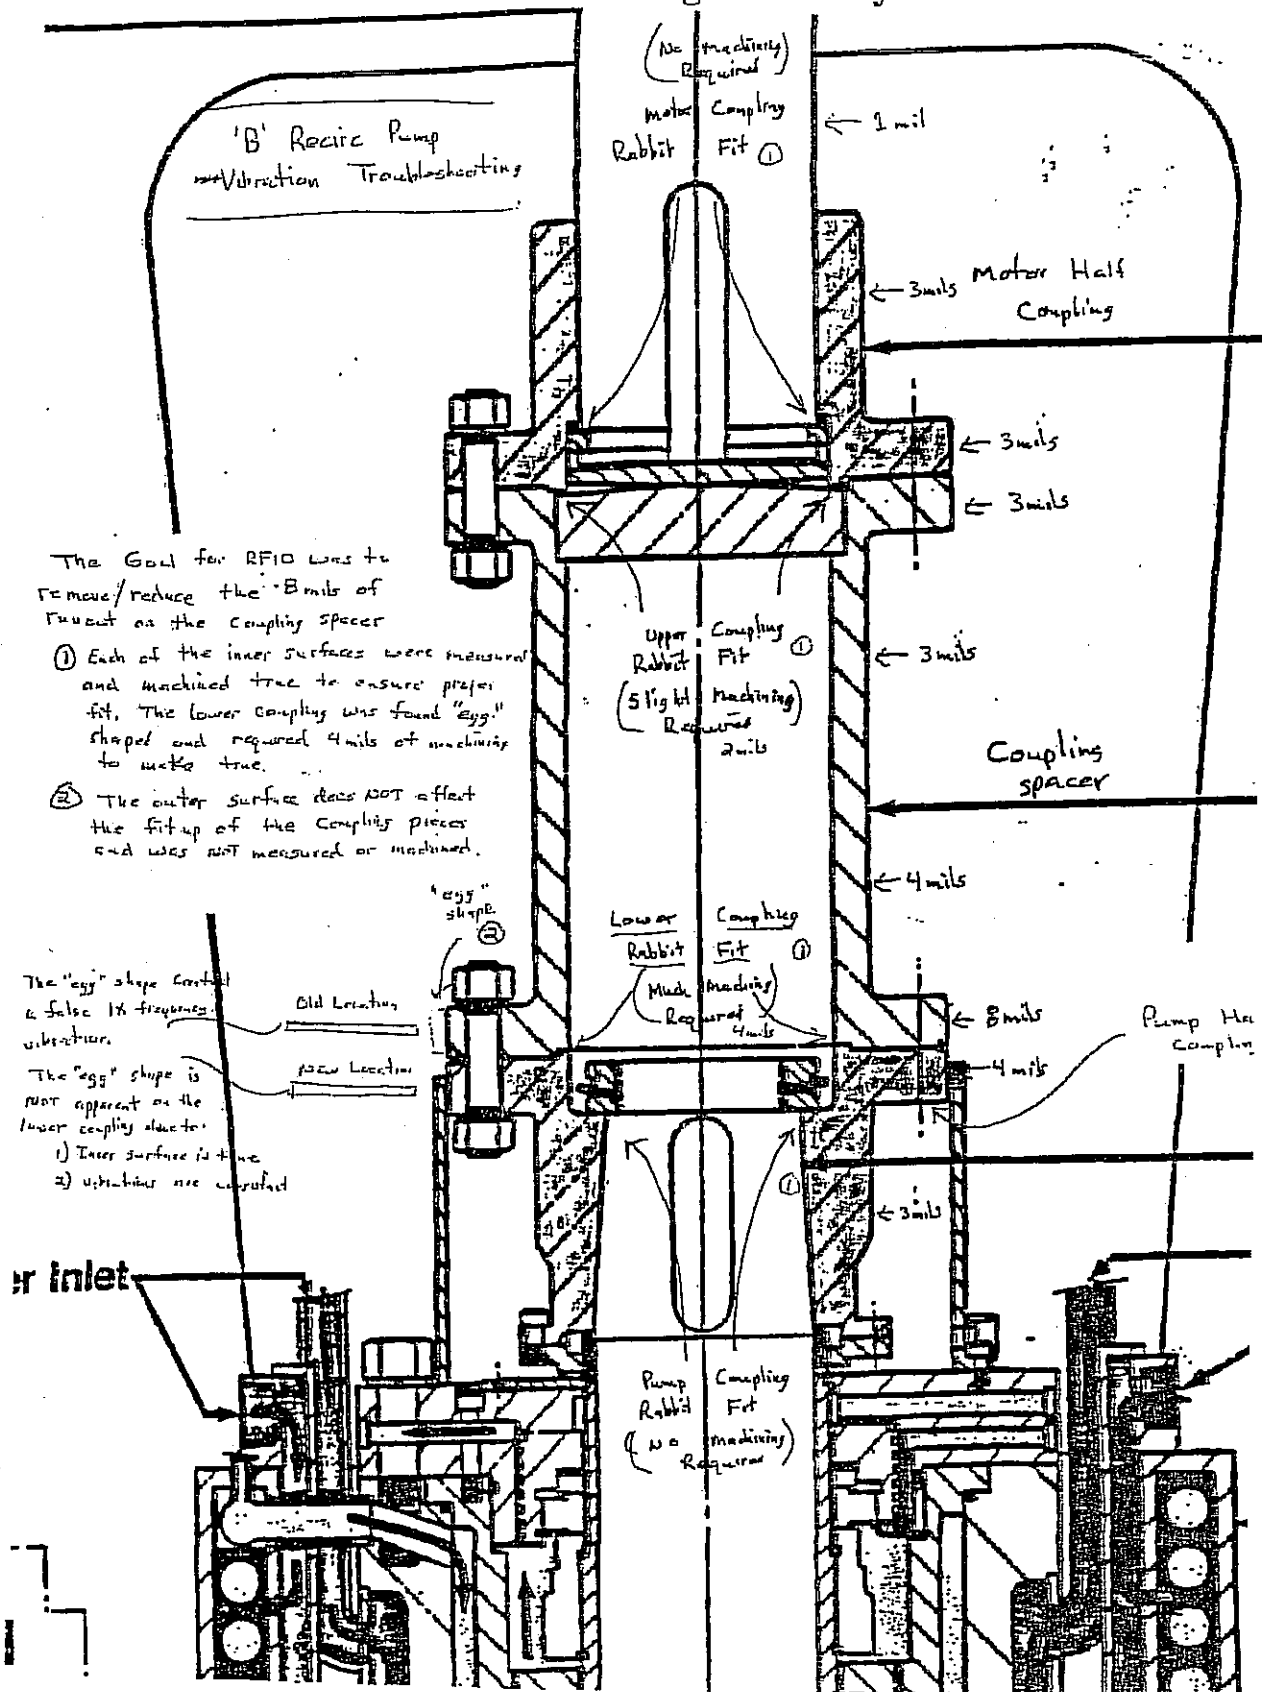 (No Machining)
Required
Motor Coupling
Rabbit Fit ①
← 1 mil
'B' Recirc Pump
Vibration Troubleshooting
← 3mils
Motor Half
Coupling
← 3mils
← 3mils
The Goal for RF10 was to
remove/reduce the 8 mils of
runout on the coupling spacer
① Each of the inner surfaces were measured
and machined true to ensure proper
fit. The lower coupling was found "egg"
shaped and required 4 mils of machining
to make true.
② The outer surface does NOT affect
the fit up of the coupling pieces
and was NOT measured or machined.
Upper Coupling
Rabbit Fit ①
(Slight Machining)
Required
2mils
← 3mils
Coupling
spacer
← 4mils
"egg"
shape
②
Lower Coupling
Rabbit Fit ①
(Much Machining)
Required
4mils
The "egg" shape
a false 1X frequency
vibration.
Old Location
← 8mils
Pump Ha
Couplin
The "egg" shape is
NOT apparent on the
lower coupling due to:
1) Inner surface is true
2) vibrations are
New Location
← 4mils
①
← 3mils
r Inlet
Pump Coupling
Rabbit Fit
(No Machining)
Required